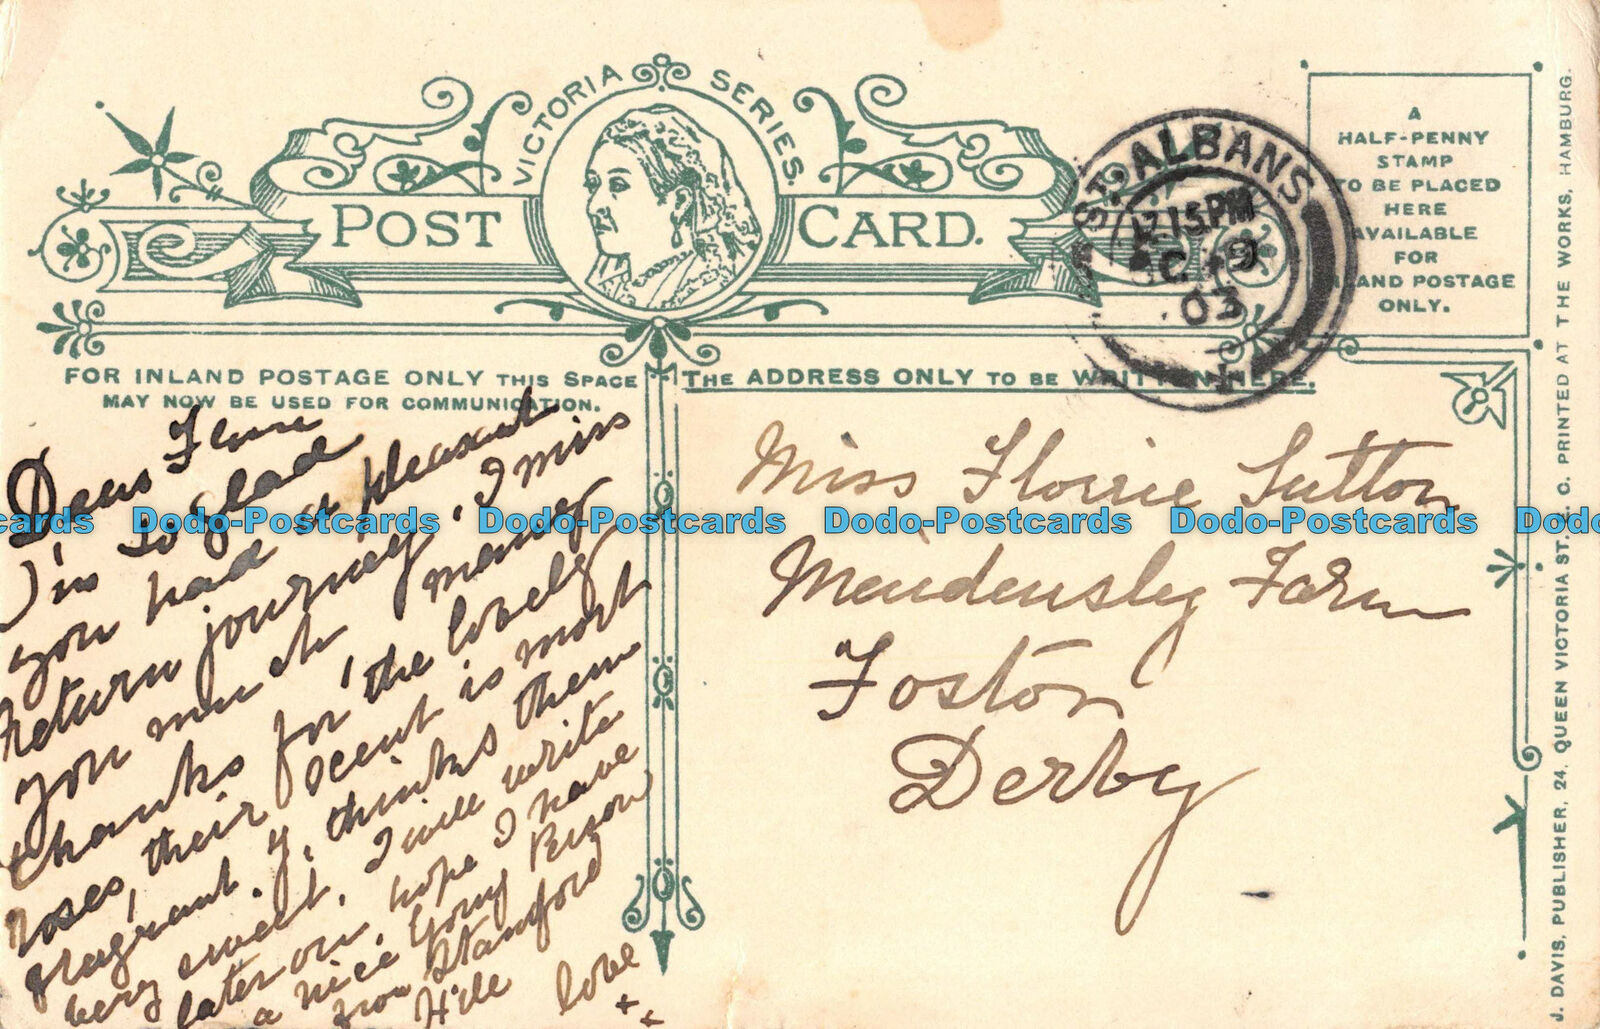 VICTORIA SERIES.
POST CARD.
ST. ALBANS
12.15.PM
9
03
A
HALF-PENNY
STAMP
TO BE PLACED
HERE
AVAILABLE
FOR
INLAND POSTAGE
ONLY.
FOR INLAND POSTAGE ONLY THIS SPACE
MAY NOW BE USED FOR COMMUNICATION.
THE ADDRESS ONLY TO BE WRITTEN HERE.
Dear
I'm so glad
you had a pleasant
return journey, I miss
you much
thanks for the lovely
roses, their scent is most
fragrant. thinks them
very sweet. I will write
later on, hope I have
a nice
from
Hill love
Miss Florrie Sutton
Farm
Foston
Derby
J. DAVIS, PUBLISHER, 24, QUEEN VICTORIA ST. E. C. PRINTED AT THE WORKS, HAMBURG.
cards Dodo-Postcards Dodo-Postcards Dodo-Postcards Dodo-Postcards Dodo